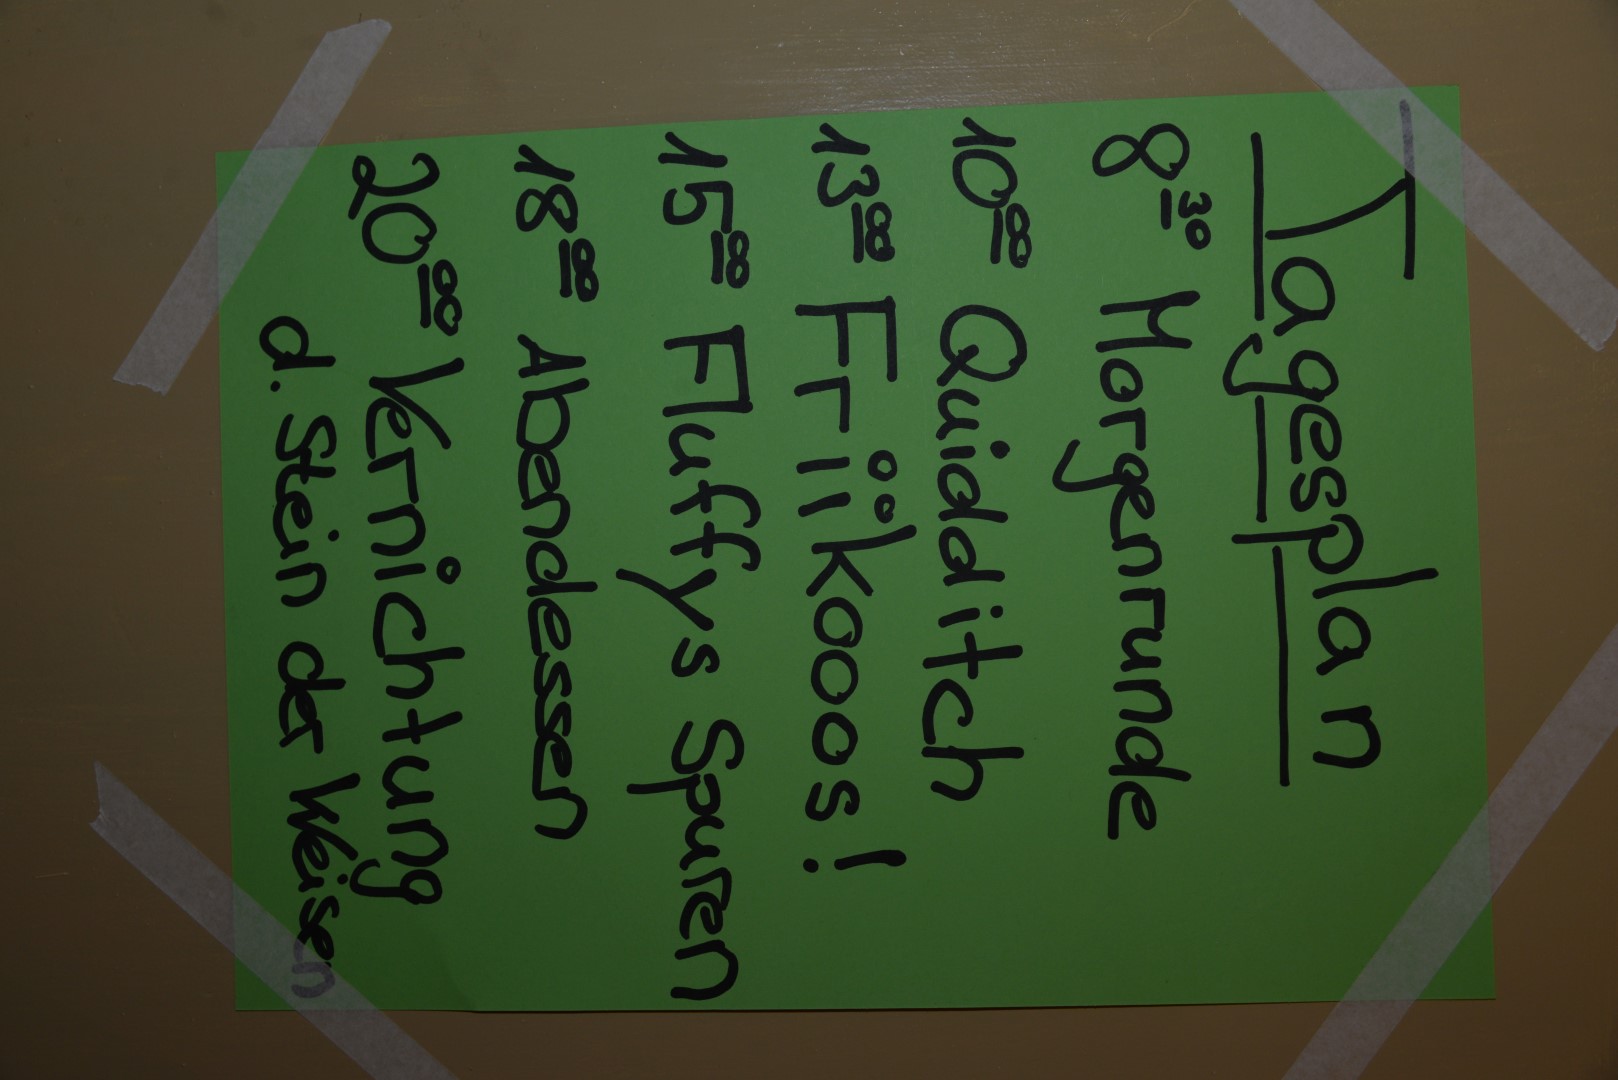 Tagesplan
8 30 Morgenrunde
10 00 Quidditch
13 00 Friikooos!
15 00 Fluffys Spuren
18 00 Abendessen
20 00 Vernichtung
d. Stein der Weisen